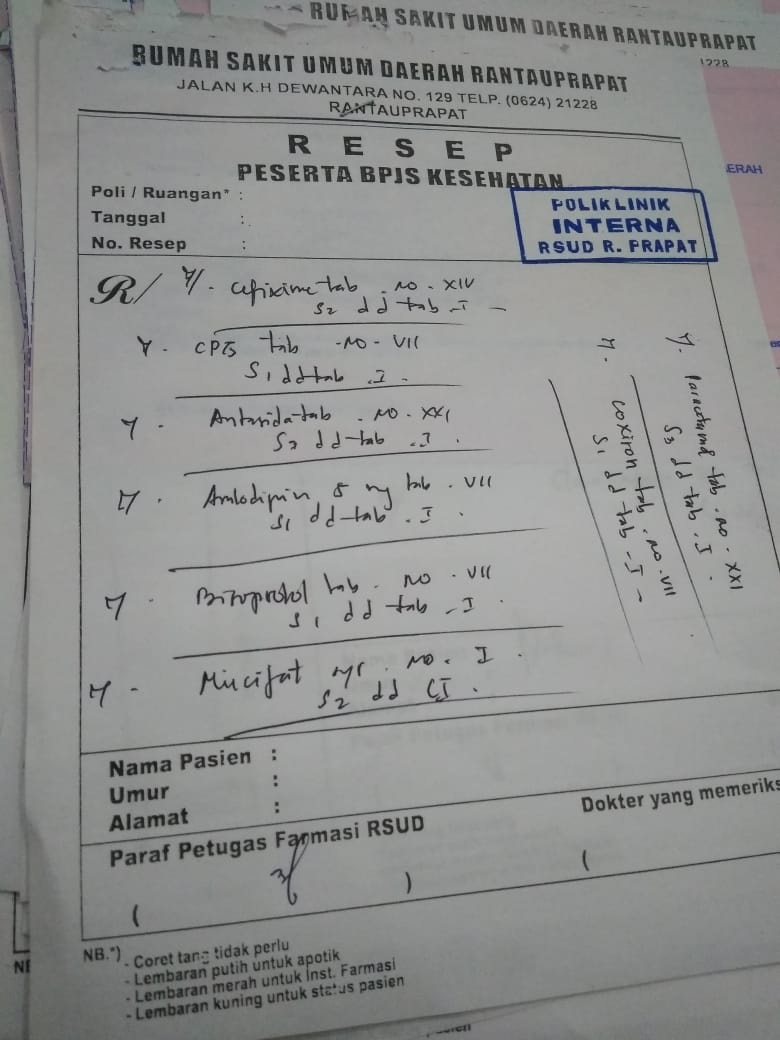 RUMAH SAKIT UMUM DAERAH RANTAUPRAPAT
1228
RUMAH SAKIT UMUM DAERAH RANTAUPRAPAT
JALAN K.H DEWANTARA NO. 129 TELP. (0624) 21228
RANTAUPRAPAT
ERAH
R E S E P
PESERTA BPJS KESEHATAN
Poli / Ruangan* :
Tanggal :
No. Resep :
POLIKLINIK
INTERNA
RSUD R. PRAPAT
R/ Cefixime tab . no . XIV
S2 dd tab . I
tab . no . VII
S1 dd tab . I .
Antasida tab . no . XXI
S3 dd tab . I .
Amlodipin 5 mg tab . VII
S1 dd tab . I .
Bisoprolol tab . no . VII
S1 dd tab . I
no . I .
S2 dd CI .
Paracetamol tab . no . XXI
S3 dd tab . I .
tab . no . VII
S1 dd tab . I
Nama Pasien :
Umur :
Alamat :
Paraf Petugas Farmasi RSUD
Dokter yang memeriks
( )
(
NB.*) - Coret tang tidak perlu
- Lembaran putih untuk apotik
- Lembaran merah untuk Inst. Farmasi
- Lembaran kuning untuk status pasien